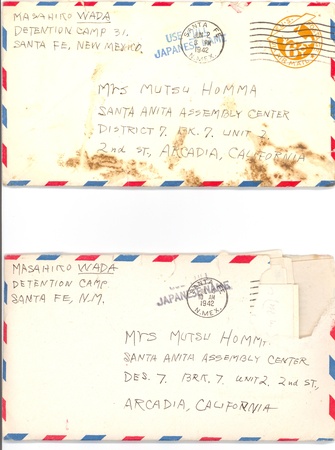 MASAHIKO WADA
DETENTION CAMP 31.
SANTA FE, NEW MEXICO.
USE
JAPANESE NAME
SANTA FE
N.MEX.
1942
Mrs MUTSU HOMMA
SANTA ANITA ASSEMBLY CENTER
DISTRICT 7. BK. 7. UNIT 2
2nd ST., ARCADIA, CALIFORNIA
MASAHIKO WADA
DETENTION CAMP.
SANTA FE, N.M.
JAPANESE NAME
SANTA
10 AM
1942
N.MEX.
Mrs MUTSU HOMM
SANTA ANITA ASSEMBLY CENTER
DES. 7. BRK. 7. UNIT 2. 2nd ST.,
ARCADIA, CALIFORNIA